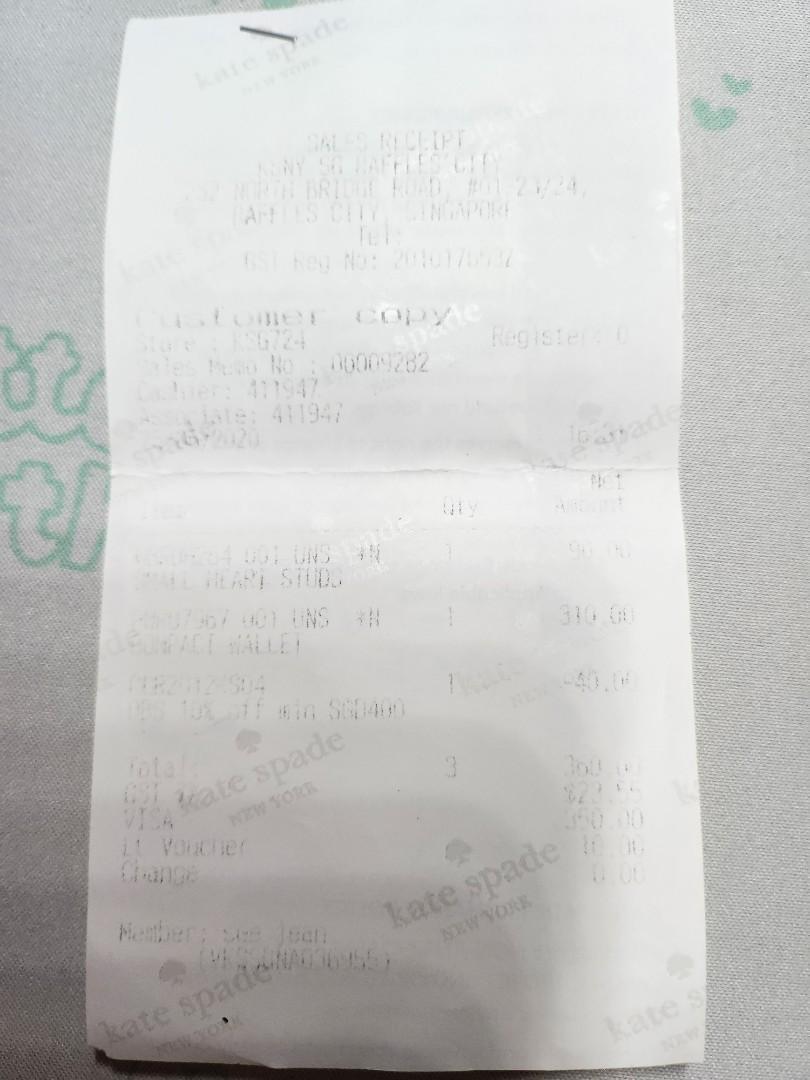 SALES RECEIPT
KSNY SG RAFFLES CITY
252 NORTH BRIDGE ROAD, #01-23/24,
RAFFLES CITY, SINGAPORE
Tel:
GST Reg No:
Customer copy
Store : KSG724 Register: 0
Sales Memo No : 00009282
Cashier: 411947
Associate: 411947
Net
Item Qty Amount
001 UNS *N 1 90.00
SMALL HEART STUDS
001 UNS *N 1 310.00
COMPACT WALLET
1 -40.00
DBS 10% off min SGD400
Total: 3 360.00
GST $23.55
VISA 350.00
Voucher 10.00
Change 0.00
Member: see jean
kate spade
NEW YORK